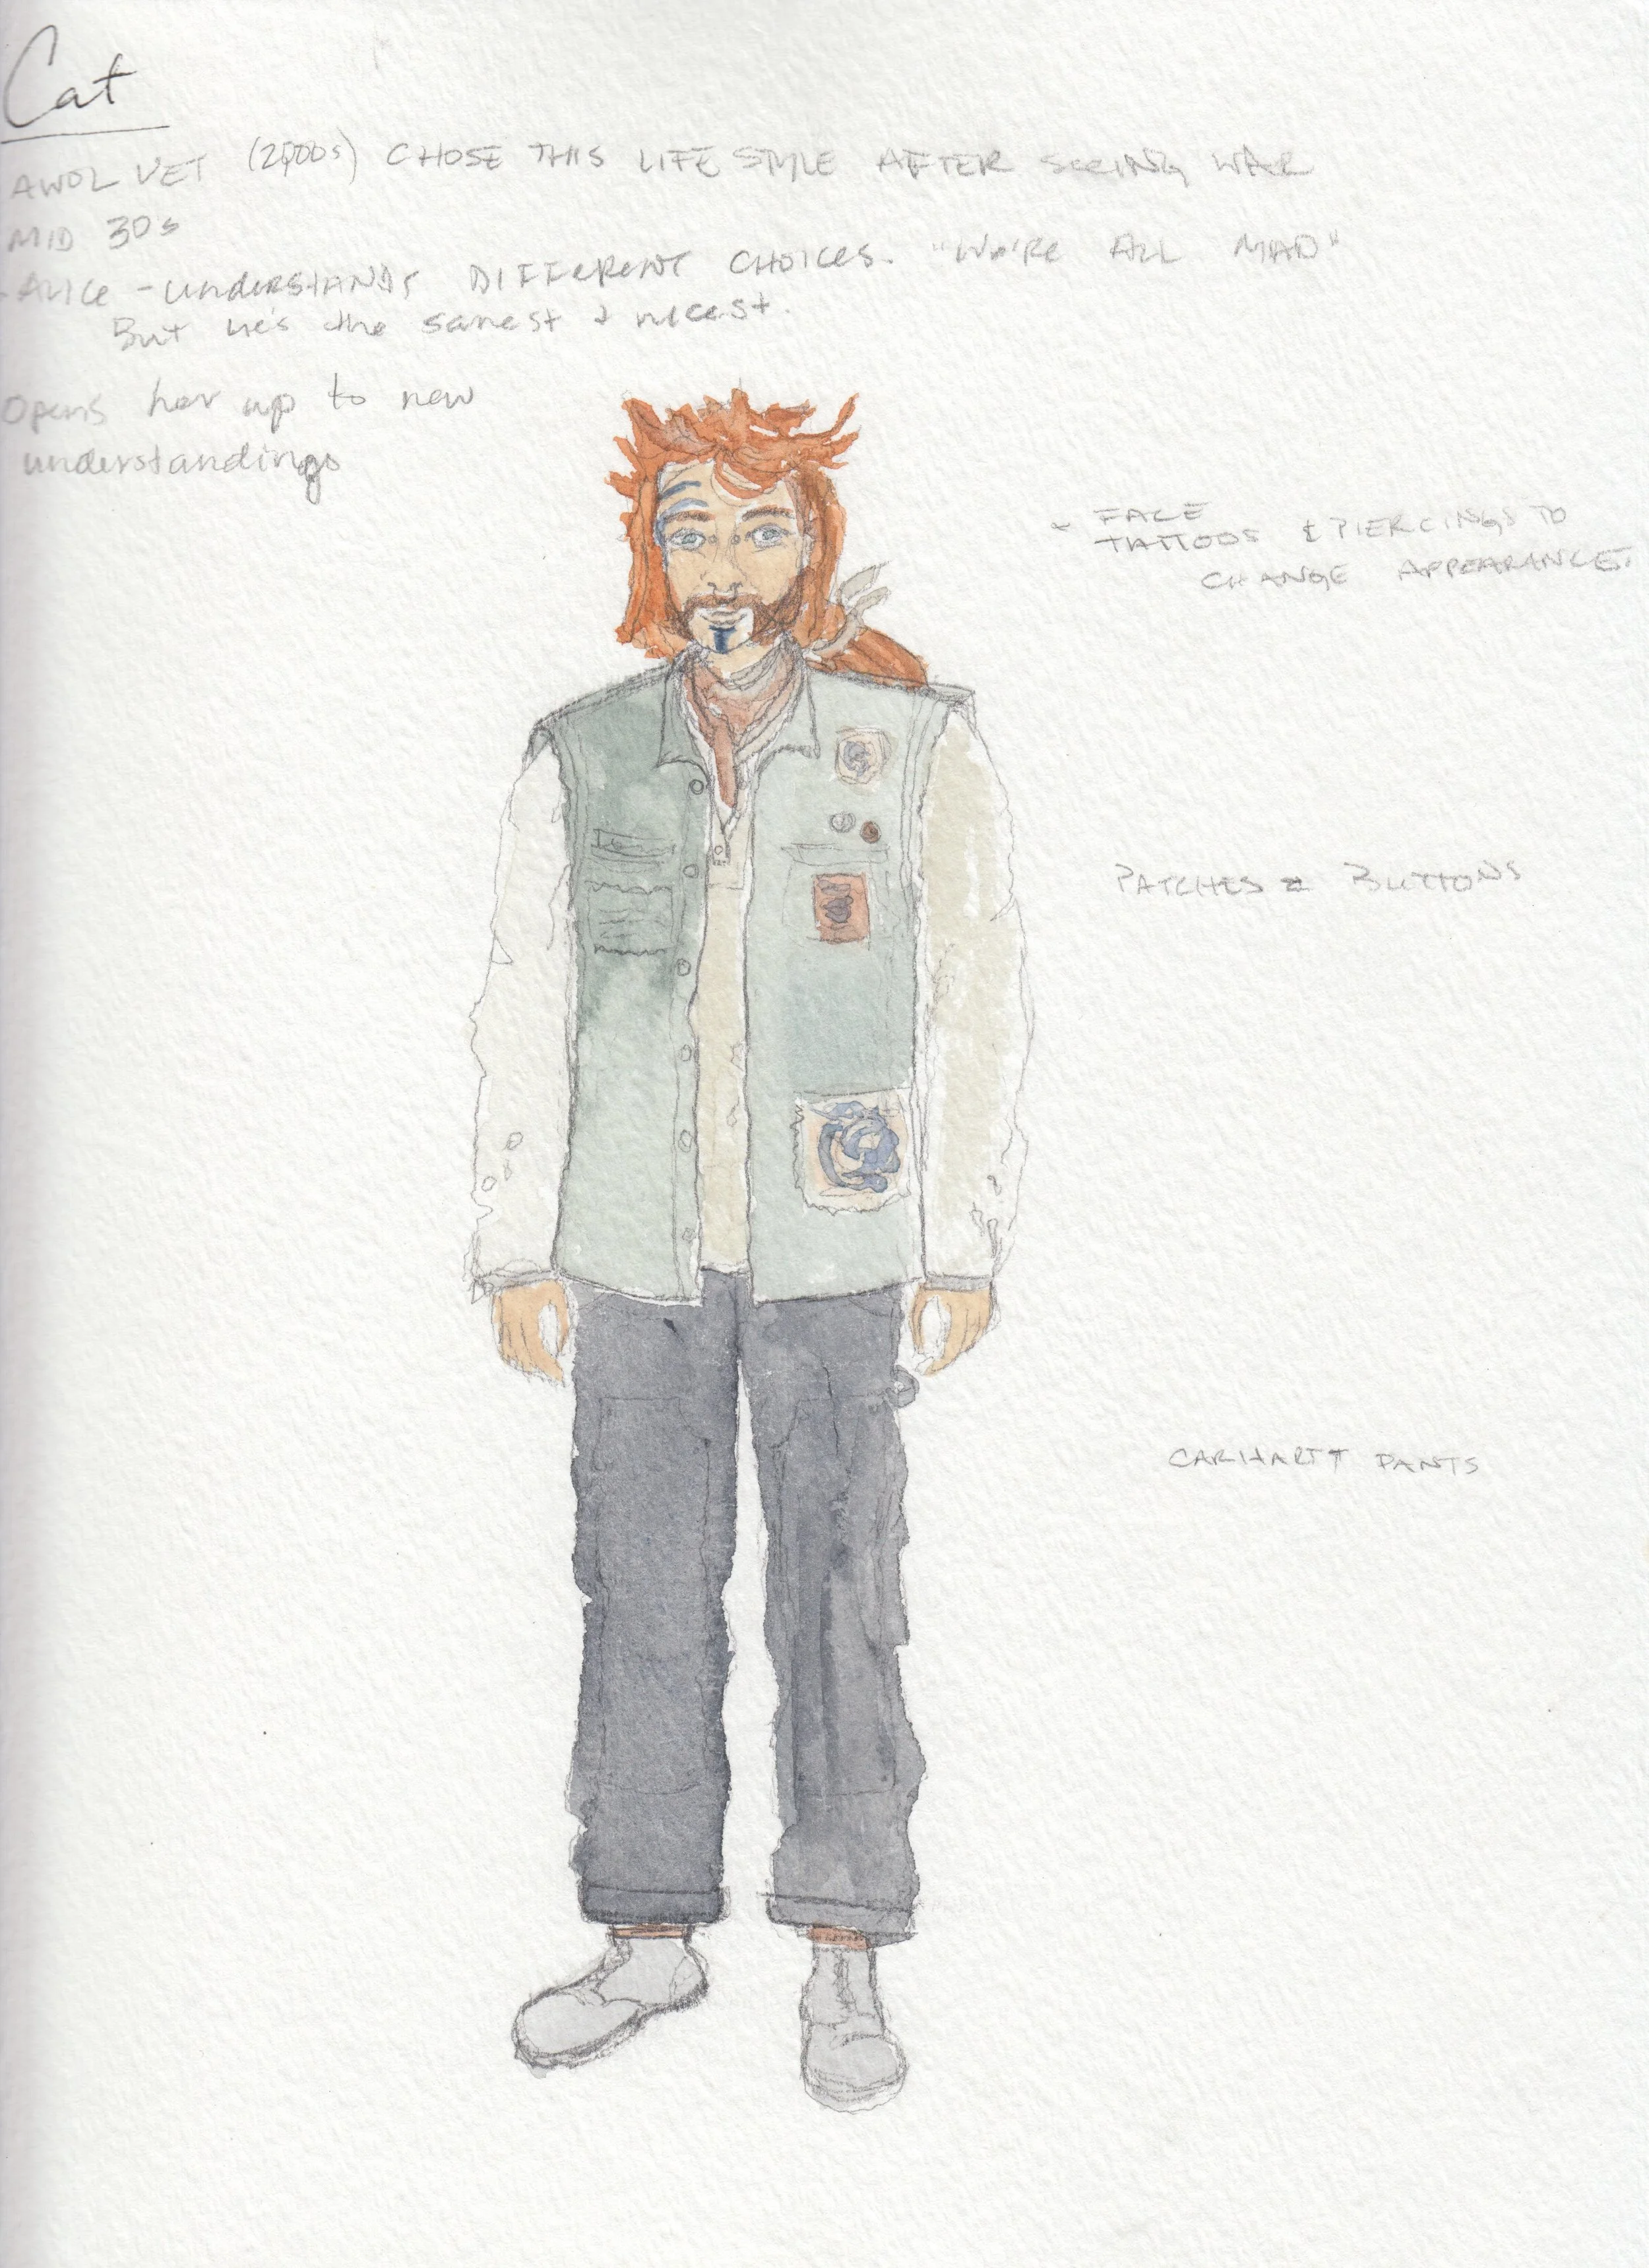 Cat
AWOL VET (2000s) CHOSE THIS LIFE STYLE AFTER SEEING WAR
MID 30s
- ALICE - UNDERSTANDS DIFFERENT CHOICES. "WE'RE ALL MAD"
But he's the sanest & nicest.
Opens her up to new
understandings
- FACE
TATTOOS & PIERCINGS TO
CHANGE APPEARANCE.
PATCHES & BUTTONS
CARHARTT PANTS